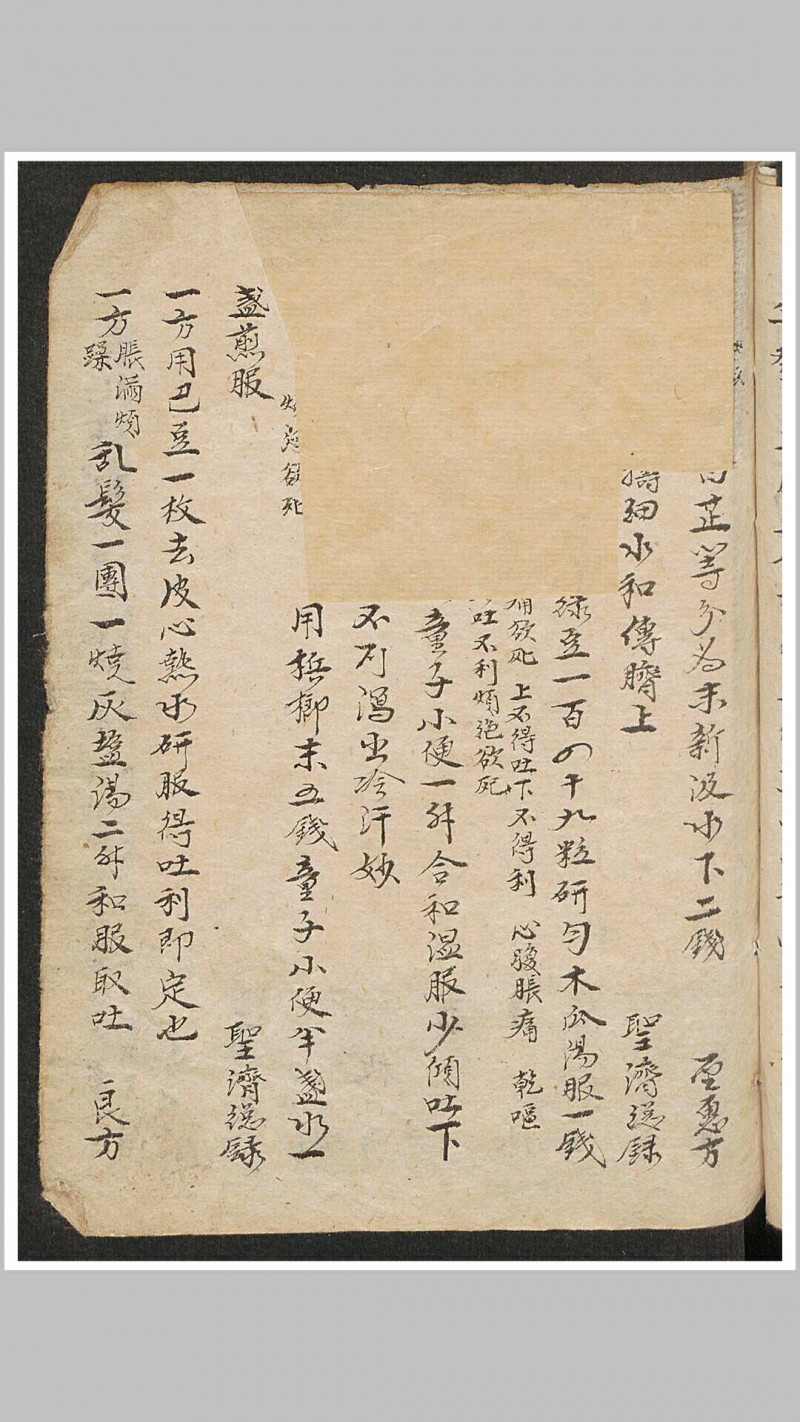 芷等分为末新汲水下二錢 聖惠方
搗細水和傅臍上 聖濟総録
綠豆一百四十九粒研匀木瓜湯服一錢
痛欲死 上不得吐下不得利 心腹脹痛 乾嘔
吐不利煩绝欲死
童子小便一升合和温服少傾吐下
不列瀉出冷汗妙
用梹榔末五錢童子小便半盞水一
欲死
盞煎服 聖濟総録
一方用巴豆一枚去皮心熱水研服得吐利即定也
一方 脹滿煩躁 乱髮一團一燒灰盐湯二升和服取吐 良方